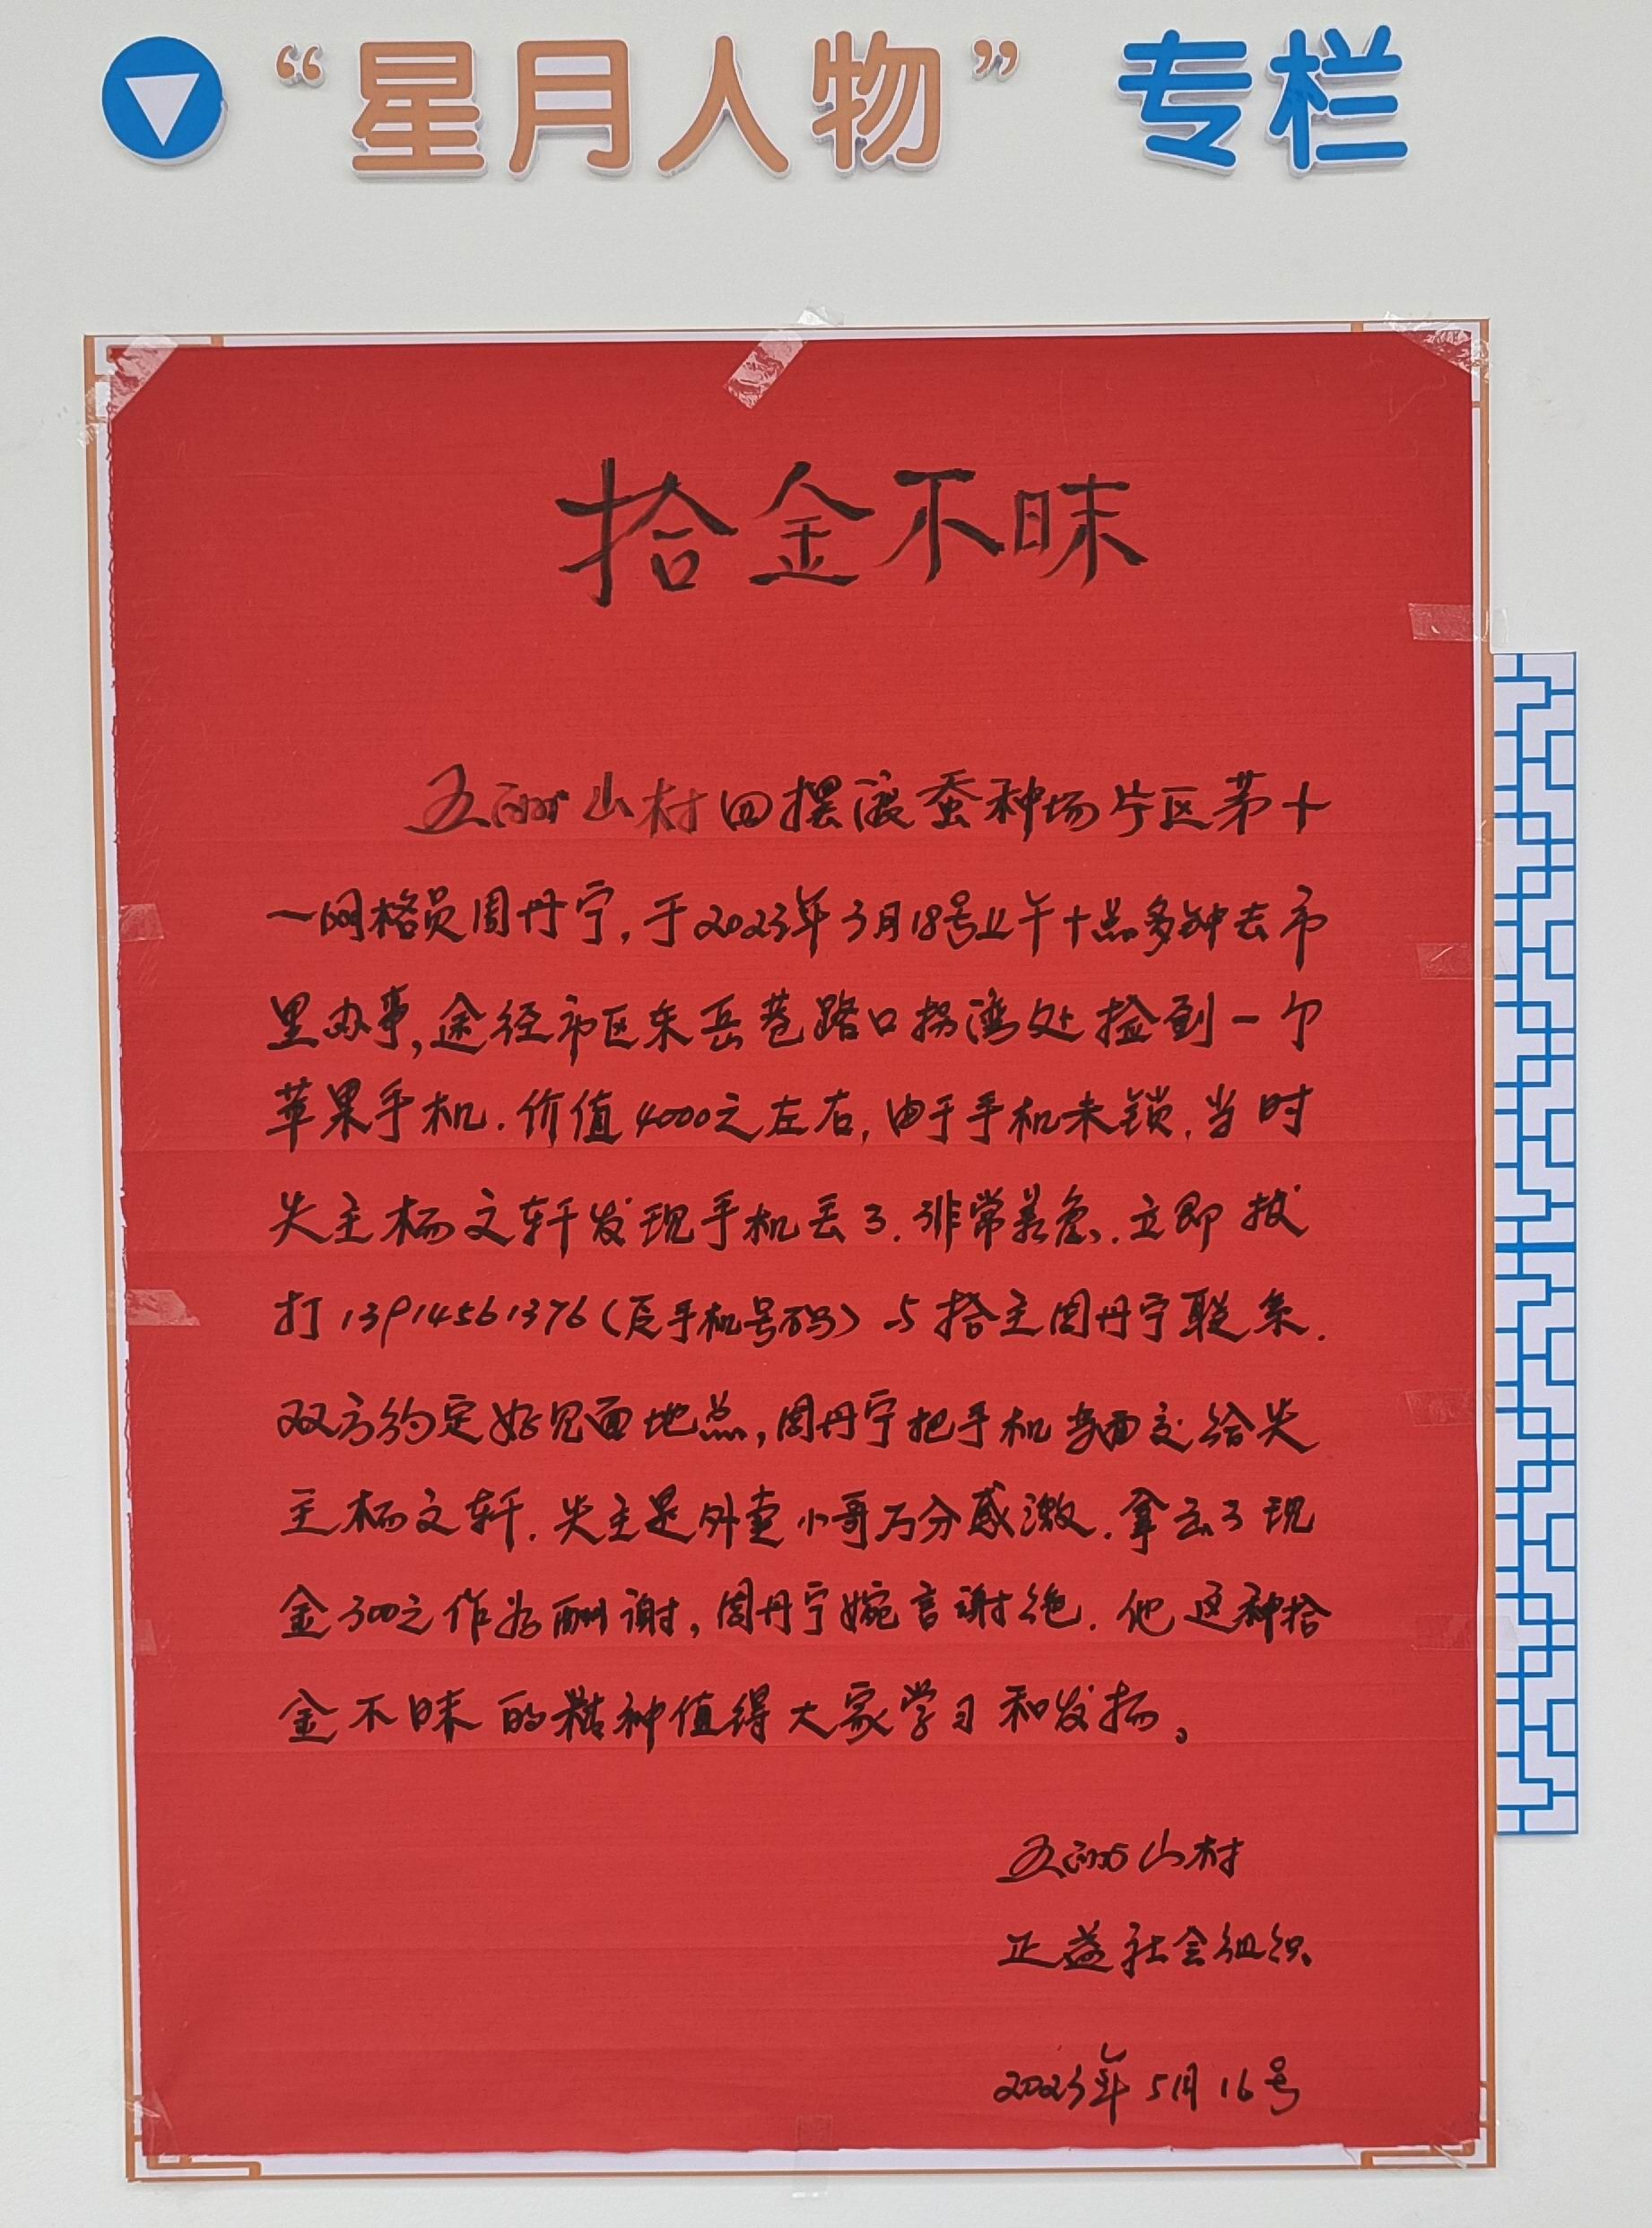 “星月人物” 专栏
拾金不昧
五洲山村四摆渡蚕种场片区第十
一网格员周丹宁,于2023年3月18号上午十点多钟去市
里办事,途径市区东岳巷路口拐湾处捡到一个
苹果手机.价值4000元左右,由于手机未锁.当时
失主杨文轩发现手机丢了.非常着急.立即拨
打13914561376(原手机号码)与拾主周丹宁联系.
双方约定好见面地点,周丹宁把手机当面交给失
主杨文轩.失主是外卖小哥万分感激.拿出了现
金300元作为酬谢,周丹宁婉言谢绝.他这种拾
金不昧的精神值得大家学习和发扬。
五洲山村
正益社会组织
2023年5月16号